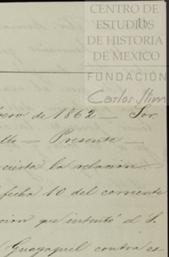 CENTRO DE
ESTUDIOS
DE HISTORIA
DE MEXICO
FUNDACIÓN
Carlos Slim
ero de 1862 — Por
llo — Presente —
la relacion
fecha 10 del corriente
cion que intentó el S.
Guayaquil contra es